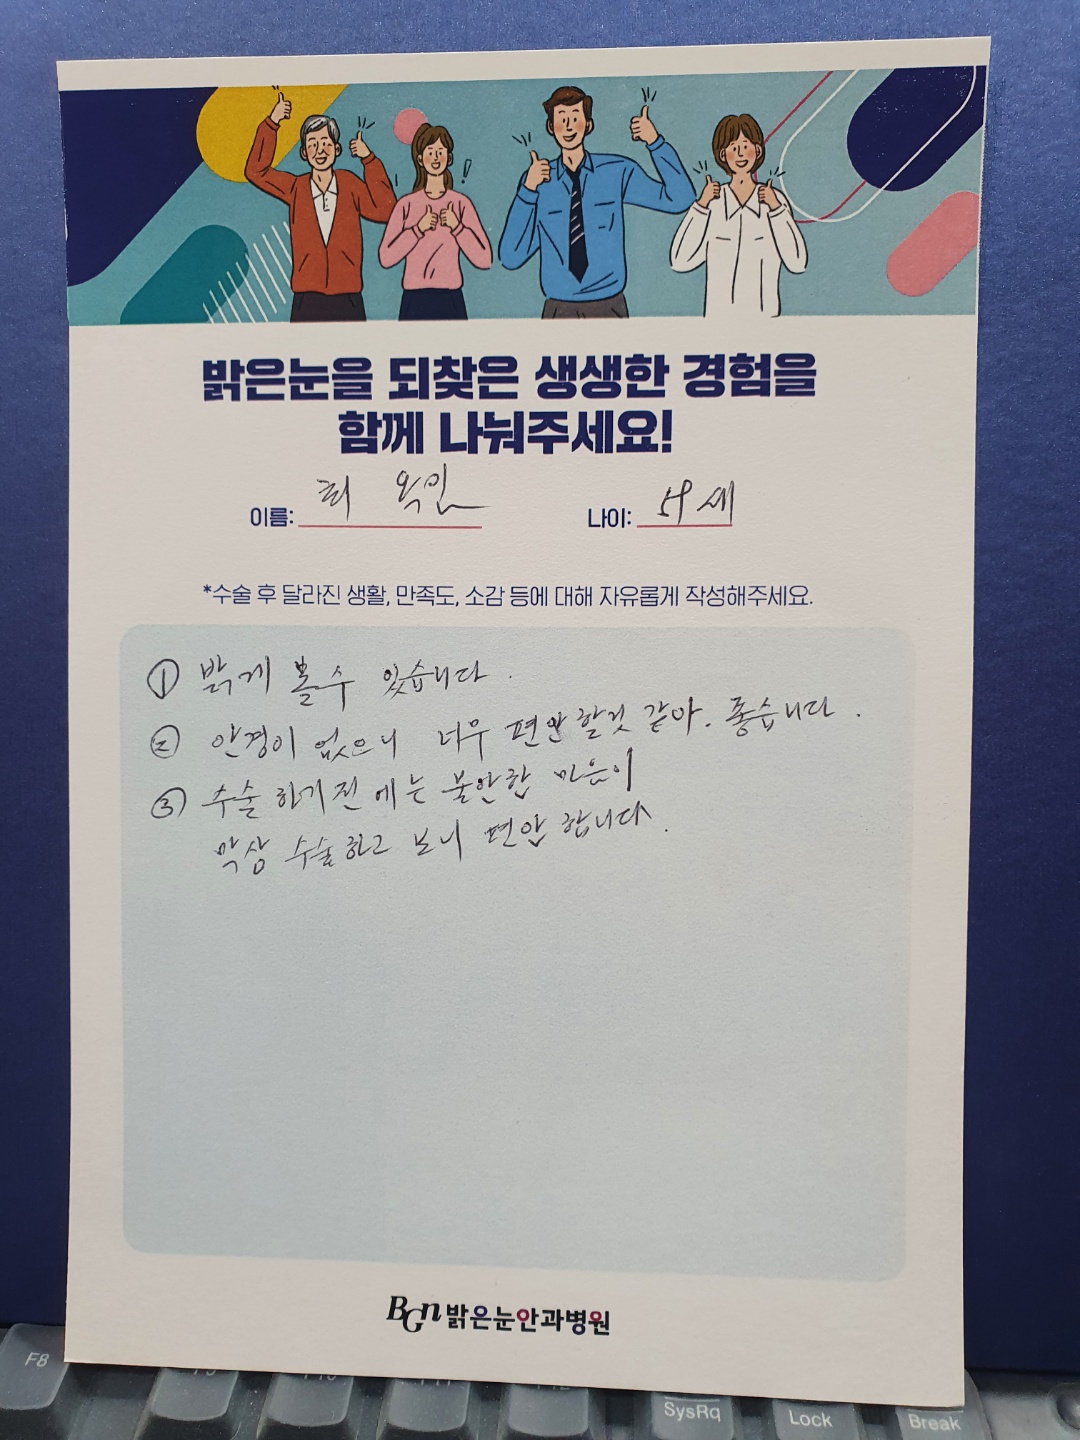 밝은눈을 되찾은 생생한 경험을
함께 나눠주세요!
이름: 최 옥인 나이: 59세
*수술 후 달라진 생활, 만족도, 소감 등에 대해 자유롭게 작성해주세요.
① 밝게 볼수 있습니다.
② 안경이 없으니 너무 편안할것 같아. 좋습니다.
③ 수술 하기전에는 불안한 마음이
막상 수술하고 보니 편안합니다.
BGN 밝은눈안과병원
F8
SysRq
Lock
Break